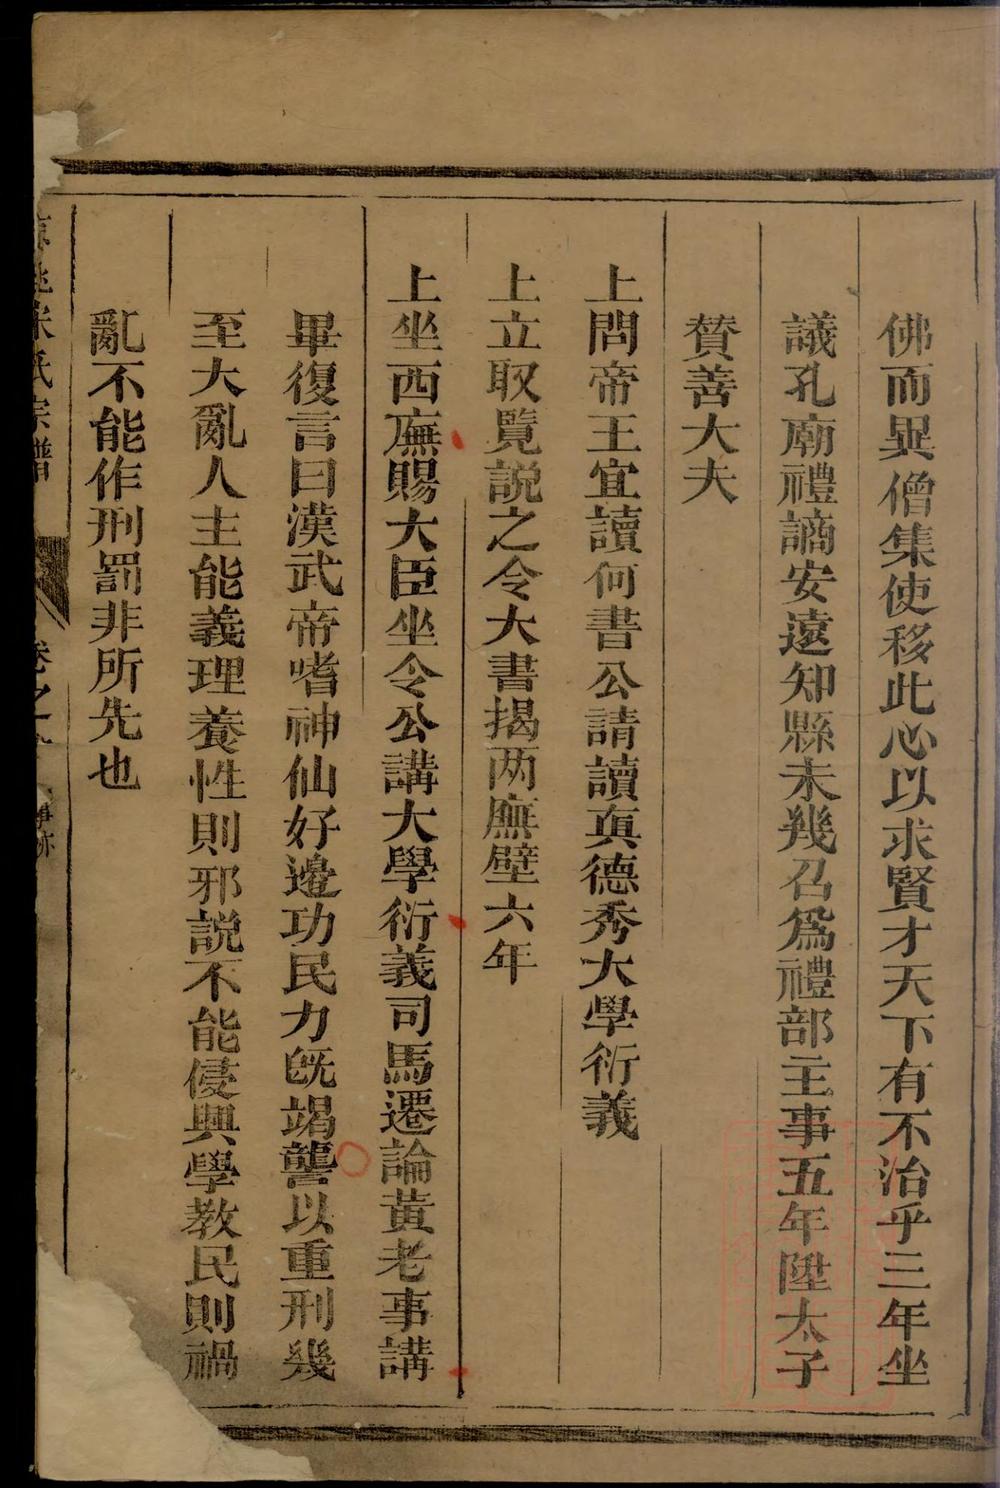 佛而異僧集使移此心以求賢才天下有不治乎三年坐
議孔廟禮謫安遠知縣未幾召爲禮部主事五年陞太子
賛善大夫
上問帝王宜讀何書公請讀眞德秀大學衍義
上立取覧説之令大書揭两廡壁六年
上坐西廡賜大臣坐令公講大學衍義司馬遷論黄老事講
畢復言曰漢武帝嗜神仙好邉功民力旣竭讋以重刑幾
至大亂人主能義理養性則邪説不能侵興學教民則禍
亂不能作刑罰非所先也
宋氏宗譜 卷之 事跡